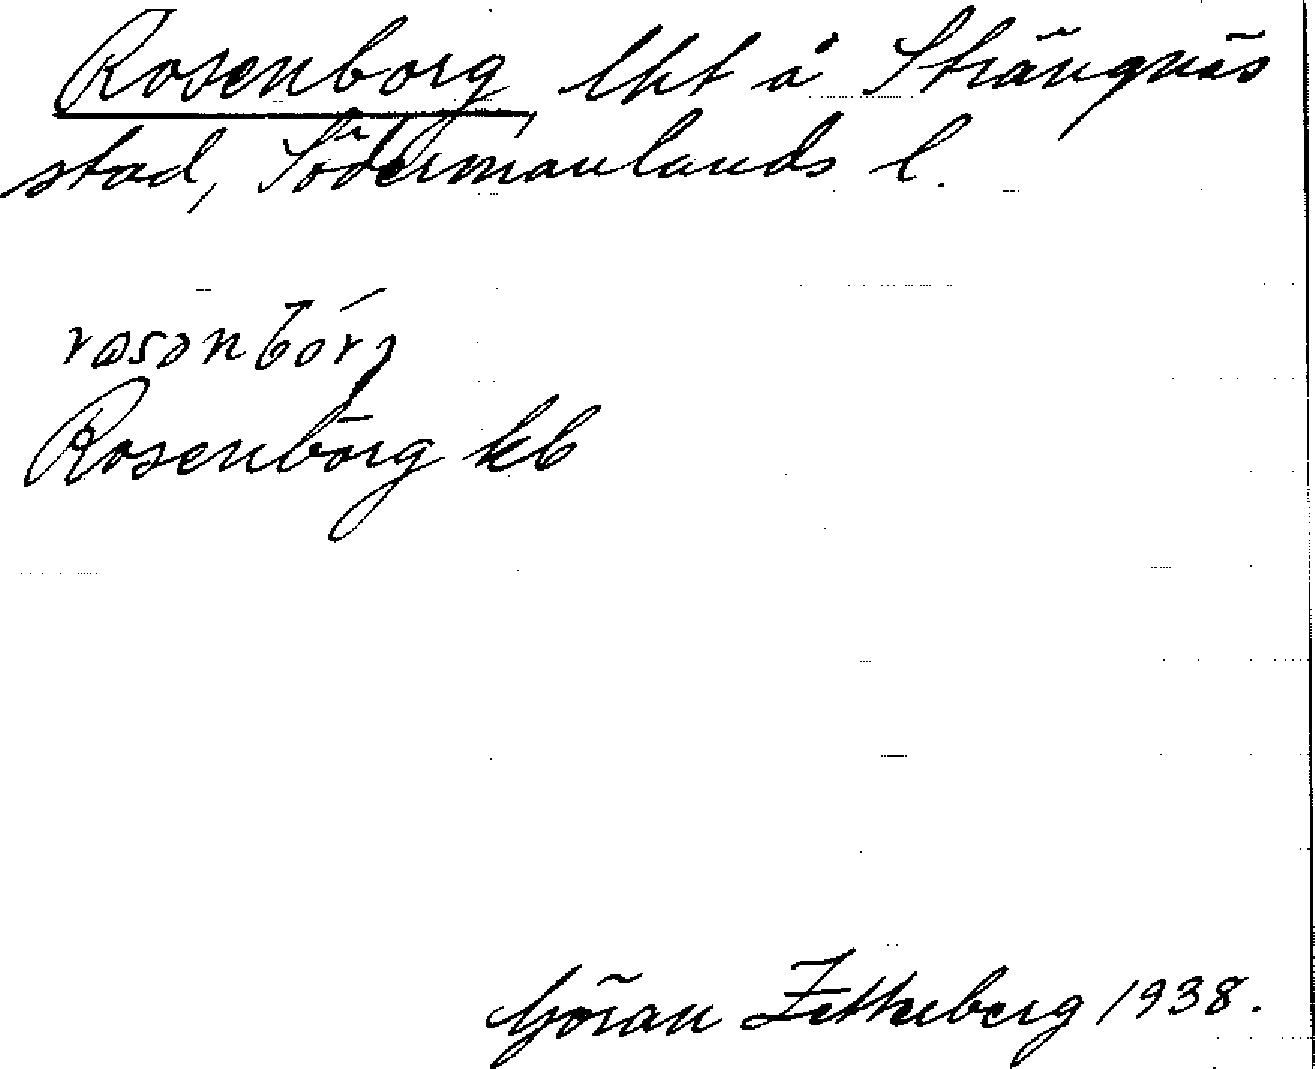 Rosenborg, lht å Strängnäs
stad, Södermanlands l.
rosenbórg
Rosenborg kb
Göran Zetterberg 1938.